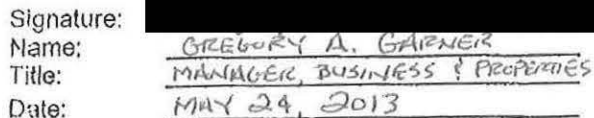 Signature:
Name: GREGORY A. GARNER
Title: MANAGER, BUSINESS & PROPERTIES
Date: MAY 24, 2013